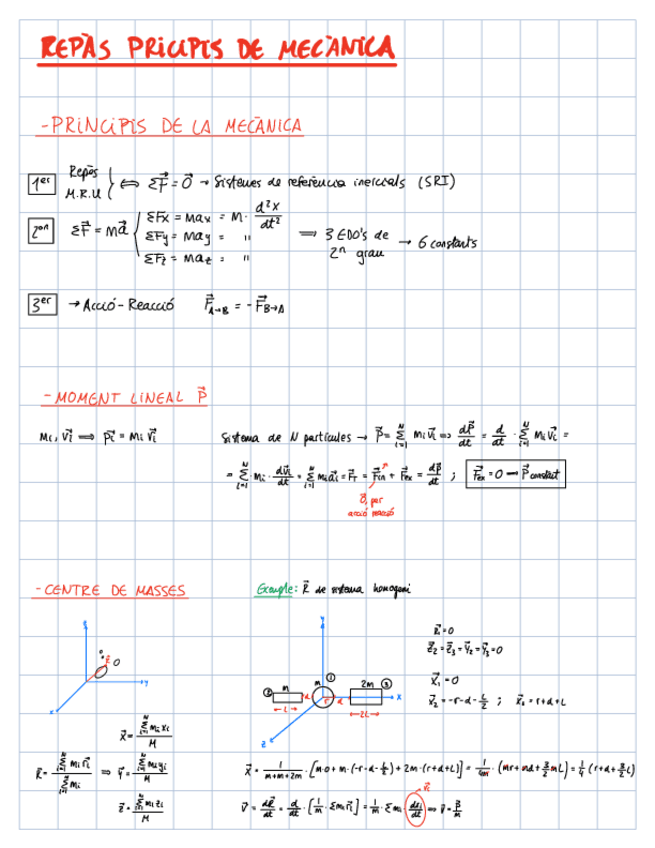 REPÀS PRICIPIS DE MECÀNICA
- PRINCIPIS DE LA MECÀNICA
1er Repòs M.R.U } ⟺ ΣF⃗ = 0⃗ → Sistemes de referència inercials (SRI)
2on ΣF⃗ = ma⃗ { ΣFx = max = m · d²x/dt²
ΣFy = may = "
ΣFz = maz = "
⟹ 3 EDO's de 2n grau → 6 constants
3er → Acció - Reacció F⃗A→B = - F⃗B→A
- MOMENT LINEAL P⃗
mi, v⃗i ⟹ p⃗i = mi v⃗i
Sistema de N partícules → P⃗ = Σ(i=1, N) mi v⃗i ⟹ dP⃗/dt = d/dt · Σ(i=1, N) mi v⃗i =
= Σ(i=1, N) mi · dv⃗i/dt = Σ(i=1, N) mi a⃗i = F⃗T = F⃗in + F⃗ex = dP⃗/dt ; F⃗ex = 0 ⟹ P⃗ constant
0, per
acció reacció
- CENTRE DE MASSES
Exemple: R⃗ de sistema homogeni
z
O
y
x
y
② m m ① 2m ③
L d r d x
2L
z
z⃗2 = z⃗3 = y⃗2 = y⃗3 = 0
x⃗1 = 0
x⃗2 = -r-d-L/2 ; = r+d+L
R⃗ = Σ(i=1, N) mi r⃗i / Σ(i=1, N) mi ⟹
x⃗ = Σ(i=1, N) mi xi / M
y⃗ = Σ(i=1, N) mi yi / M
z⃗ = Σ(i=1, N) mi zi / M
x⃗ = 1/(m+m+2m) · [m·0 + m·(-r-d-L/2) + 2m·(r+d+L)] = 1/4m · (mr + md + 3/2 mL) = 1/4 (r+d+3/2 L)
v⃗i
V⃗ = dR⃗/dt = d/dt · [1/m · Σmi r⃗i] = 1/m · Σmi · dri/dt ⟹ V⃗ = P⃗/m